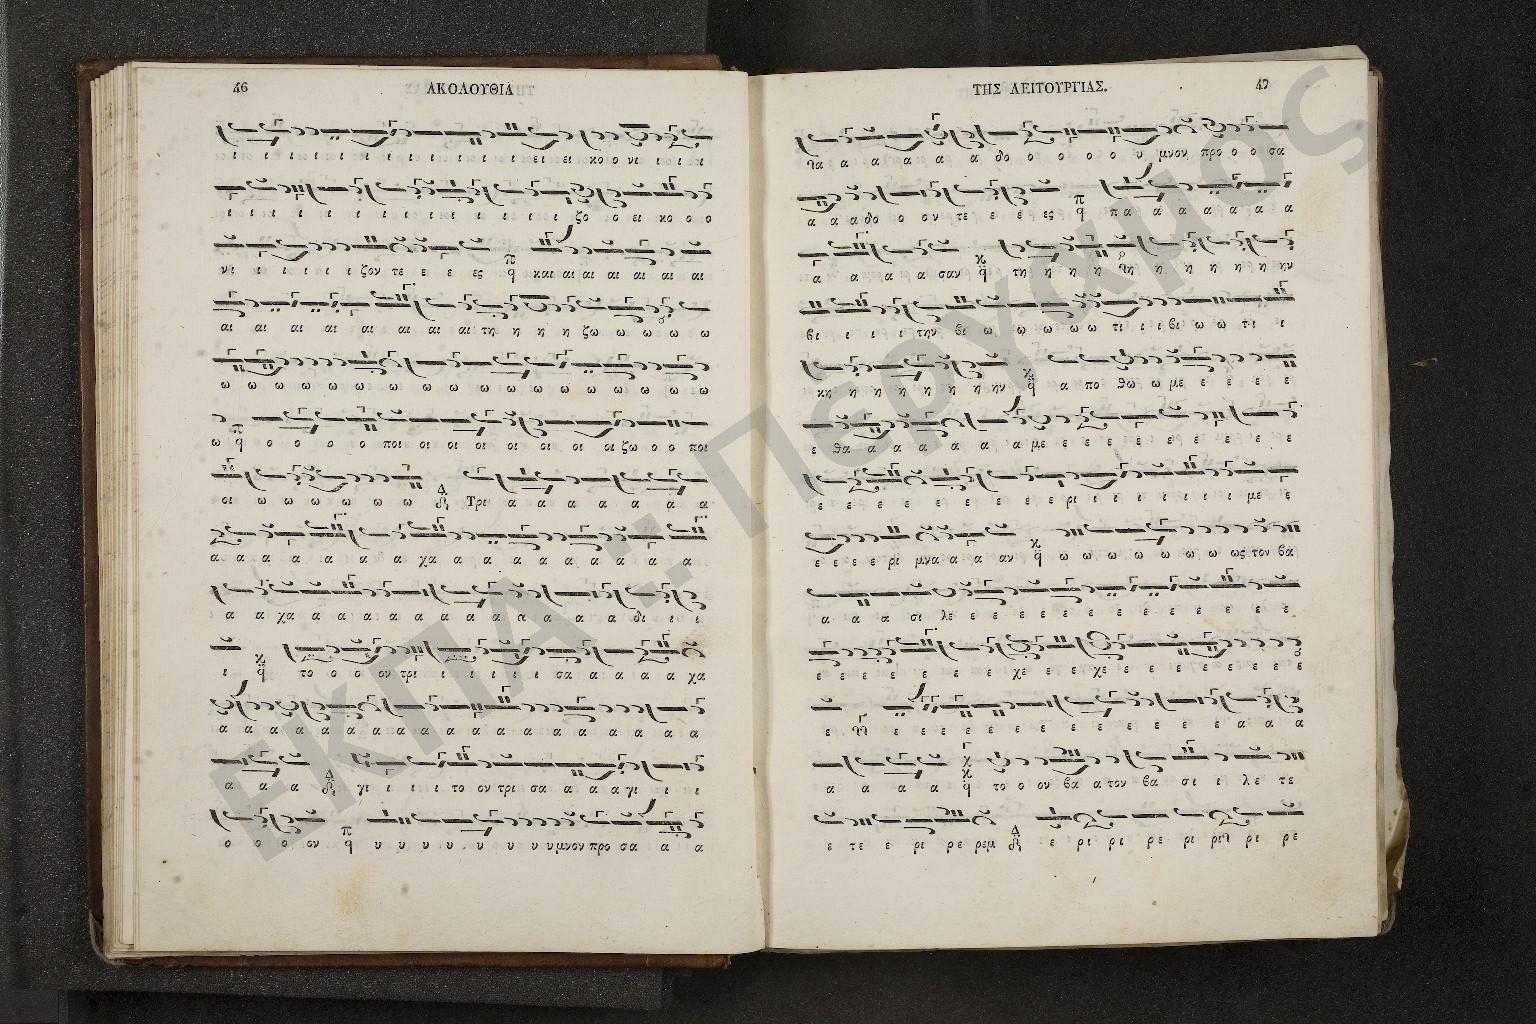 46 ΑΚΟΛΟΥΘΙΑ
ι ι ι ι ι ι ι ι ι ι ι ι ι ει ει κο ο νι ι ι ι
ι ι ι ι ι ι ι ι ι ι ι ι ι ι ι ζο ο ει κο ο ο
νι ι ι ι ι ι ζον τε ε ε ες και αι αι αι αι αι αι
αι αι αι αι αι αι αι αι τη η η η ζω ω ω ω ω
ω ω ω ω ω ω ω ω ω ω ω ω ω ω ω ω ω ω
ω ο ο ο ο ο ποι οι οι οι οι οι οι οι οι ζω ο ο ποι
οι ω ω ω ω ω ω Τρι α α α α α α α
α α α α α α α α χα α α α α α α α α α α
α α χα α α α α α α α α α α α α δι ι ι
ι το ο ο ον τρι ι ι ι ι ι σα α α α α χα
α α α α α α α α α α α α α α α α α α α
α α α γι ι ι ι το ον τρι σα α α α γι ι ι
ο ο ο ον υ υ υ υ υ υ υ υ υμνον προ σα α α
ΤΗΣ ΛΕΙΤΟΥΡΓΙΑΣ. 47
α α α α α α δο ο ο ο ο ο υ μνον προ ο ο σα
α α α δο ο ον τε ε ε ες πα α α α α α α
α α α α α σαν τη η η η η η η η η ην
βι ι ι ι την βι ω ω ω ω ω τι ι ι βι ω ω τι ι
κη η η η η η η ην α πο θω ω με ε ε ε ε
ε θα α α α α α α α με ε ε ε ε ε ε ε ε ε
ε ε ε ε ε ε ε ε ε ρι ι ι ι ι ι ι ι με ε
ε ε ε ε ρι μνα α α αν ω ω ω ω ω ω ω ως τον βα
α α α σι λε ε ε ε ε ε ε ε ε ε ε ε ε
ε ε ε ε ε ε ε χε ε ε χε ε ε ε ε ε ε ε
ε ε ε ε ε ε ε ε ε ε ε ε ε ε ε α α α
α α α α το ο ον βα α τον βα σι ι λε τε
ε τε ε ρι ρε ρεμ ε ρι ρι ρε ρι ρι ρε
ΕΚΠΑ :: Περγαμος